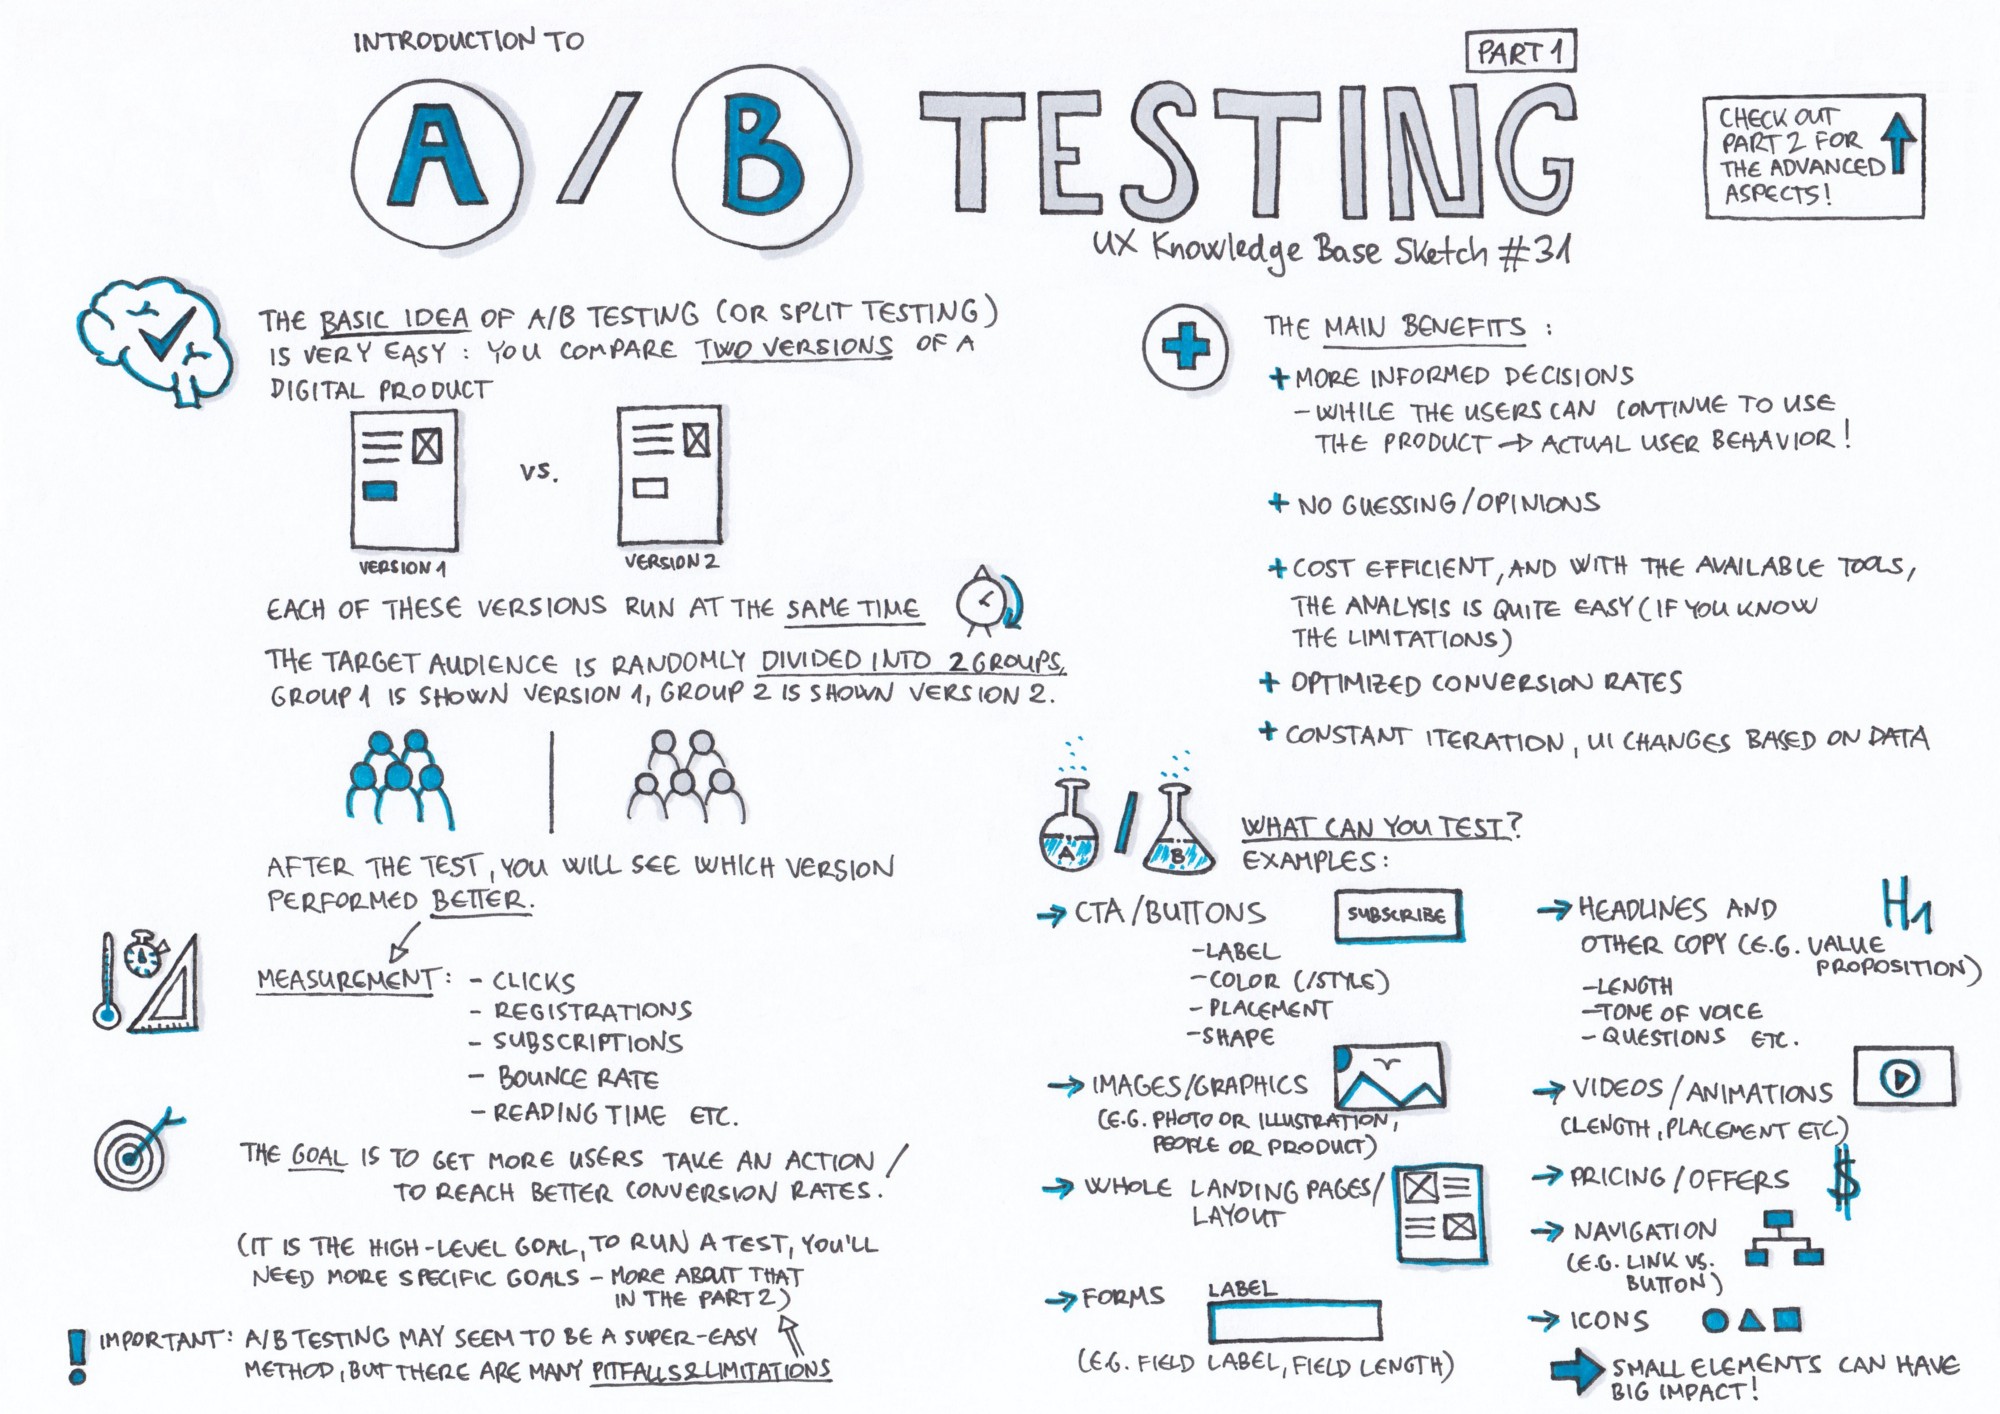 INTRODUCTION TO
A/B TESTING
PART 1
UX Knowledge Base Sketch #31
CHECK OUT
PART 2 FOR
THE ADVANCED
ASPECTS!
THE BASIC IDEA OF A/B TESTING (OR SPLIT TESTING)
IS VERY EASY: YOU COMPARE TWO VERSIONS OF A
DIGITAL PRODUCT
VS.
VERSION 1
VERSION 2
EACH OF THESE VERSIONS RUN AT THE SAME TIME
THE TARGET AUDIENCE IS RANDOMLY DIVIDED INTO 2 GROUPS,
GROUP 1 IS SHOWN VERSION 1, GROUP 2 IS SHOWN VERSION 2.
AFTER THE TEST, YOU WILL SEE WHICH VERSION
PERFORMED BETTER.
MEASUREMENT: - CLICKS
- REGISTRATIONS
- SUBSCRIPTIONS
- BOUNCE RATE
- READING TIME ETC.
THE GOAL IS TO GET MORE USERS TAKE AN ACTION /
TO REACH BETTER CONVERSION RATES.
(IT IS THE HIGH-LEVEL GOAL, TO RUN A TEST, YOU'LL
NEED MORE SPECIFIC GOALS - MORE ABOUT THAT
IN THE PART 2)
! IMPORTANT: A/B TESTING MAY SEEM TO BE A SUPER-EASY
METHOD, BUT THERE ARE MANY PITFALLS & LIMITATIONS
THE MAIN BENEFITS:
+ MORE INFORMED DECISIONS
- WHILE THE USERS CAN CONTINUE TO USE
THE PRODUCT → ACTUAL USER BEHAVIOR!
+ NO GUESSING/OPINIONS
+ COST EFFICIENT, AND WITH THE AVAILABLE TOOLS,
THE ANALYSIS IS QUITE EASY (IF YOU KNOW
THE LIMITATIONS)
+ OPTIMIZED CONVERSION RATES
+ CONSTANT ITERATION, UI CHANGES BASED ON DATA
A / B
WHAT CAN YOU TEST?
EXAMPLES:
→ CTA/BUTTONS
SUBSCRIBE
- LABEL
- COLOR (/STYLE)
- PLACEMENT
- SHAPE
→ IMAGES/GRAPHICS
(E.G. PHOTO OR ILLUSTRATION,
PEOPLE OR PRODUCT)
→ WHOLE LANDING PAGES/
LAYOUT
→ FORMS
LABEL
(E.G. FIELD LABEL, FIELD LENGTH)
→ HEADLINES AND
H1
OTHER COPY (E.G. VALUE
PROPOSITION)
- LENGTH
- TONE OF VOICE
- QUESTIONS ETC.
→ VIDEOS/ANIMATIONS
(LENGTH, PLACEMENT ETC)
→ PRICING/OFFERS
$
→ NAVIGATION
(E.G. LINK VS.
BUTTON)
→ ICONS
→ SMALL ELEMENTS CAN HAVE
BIG IMPACT!